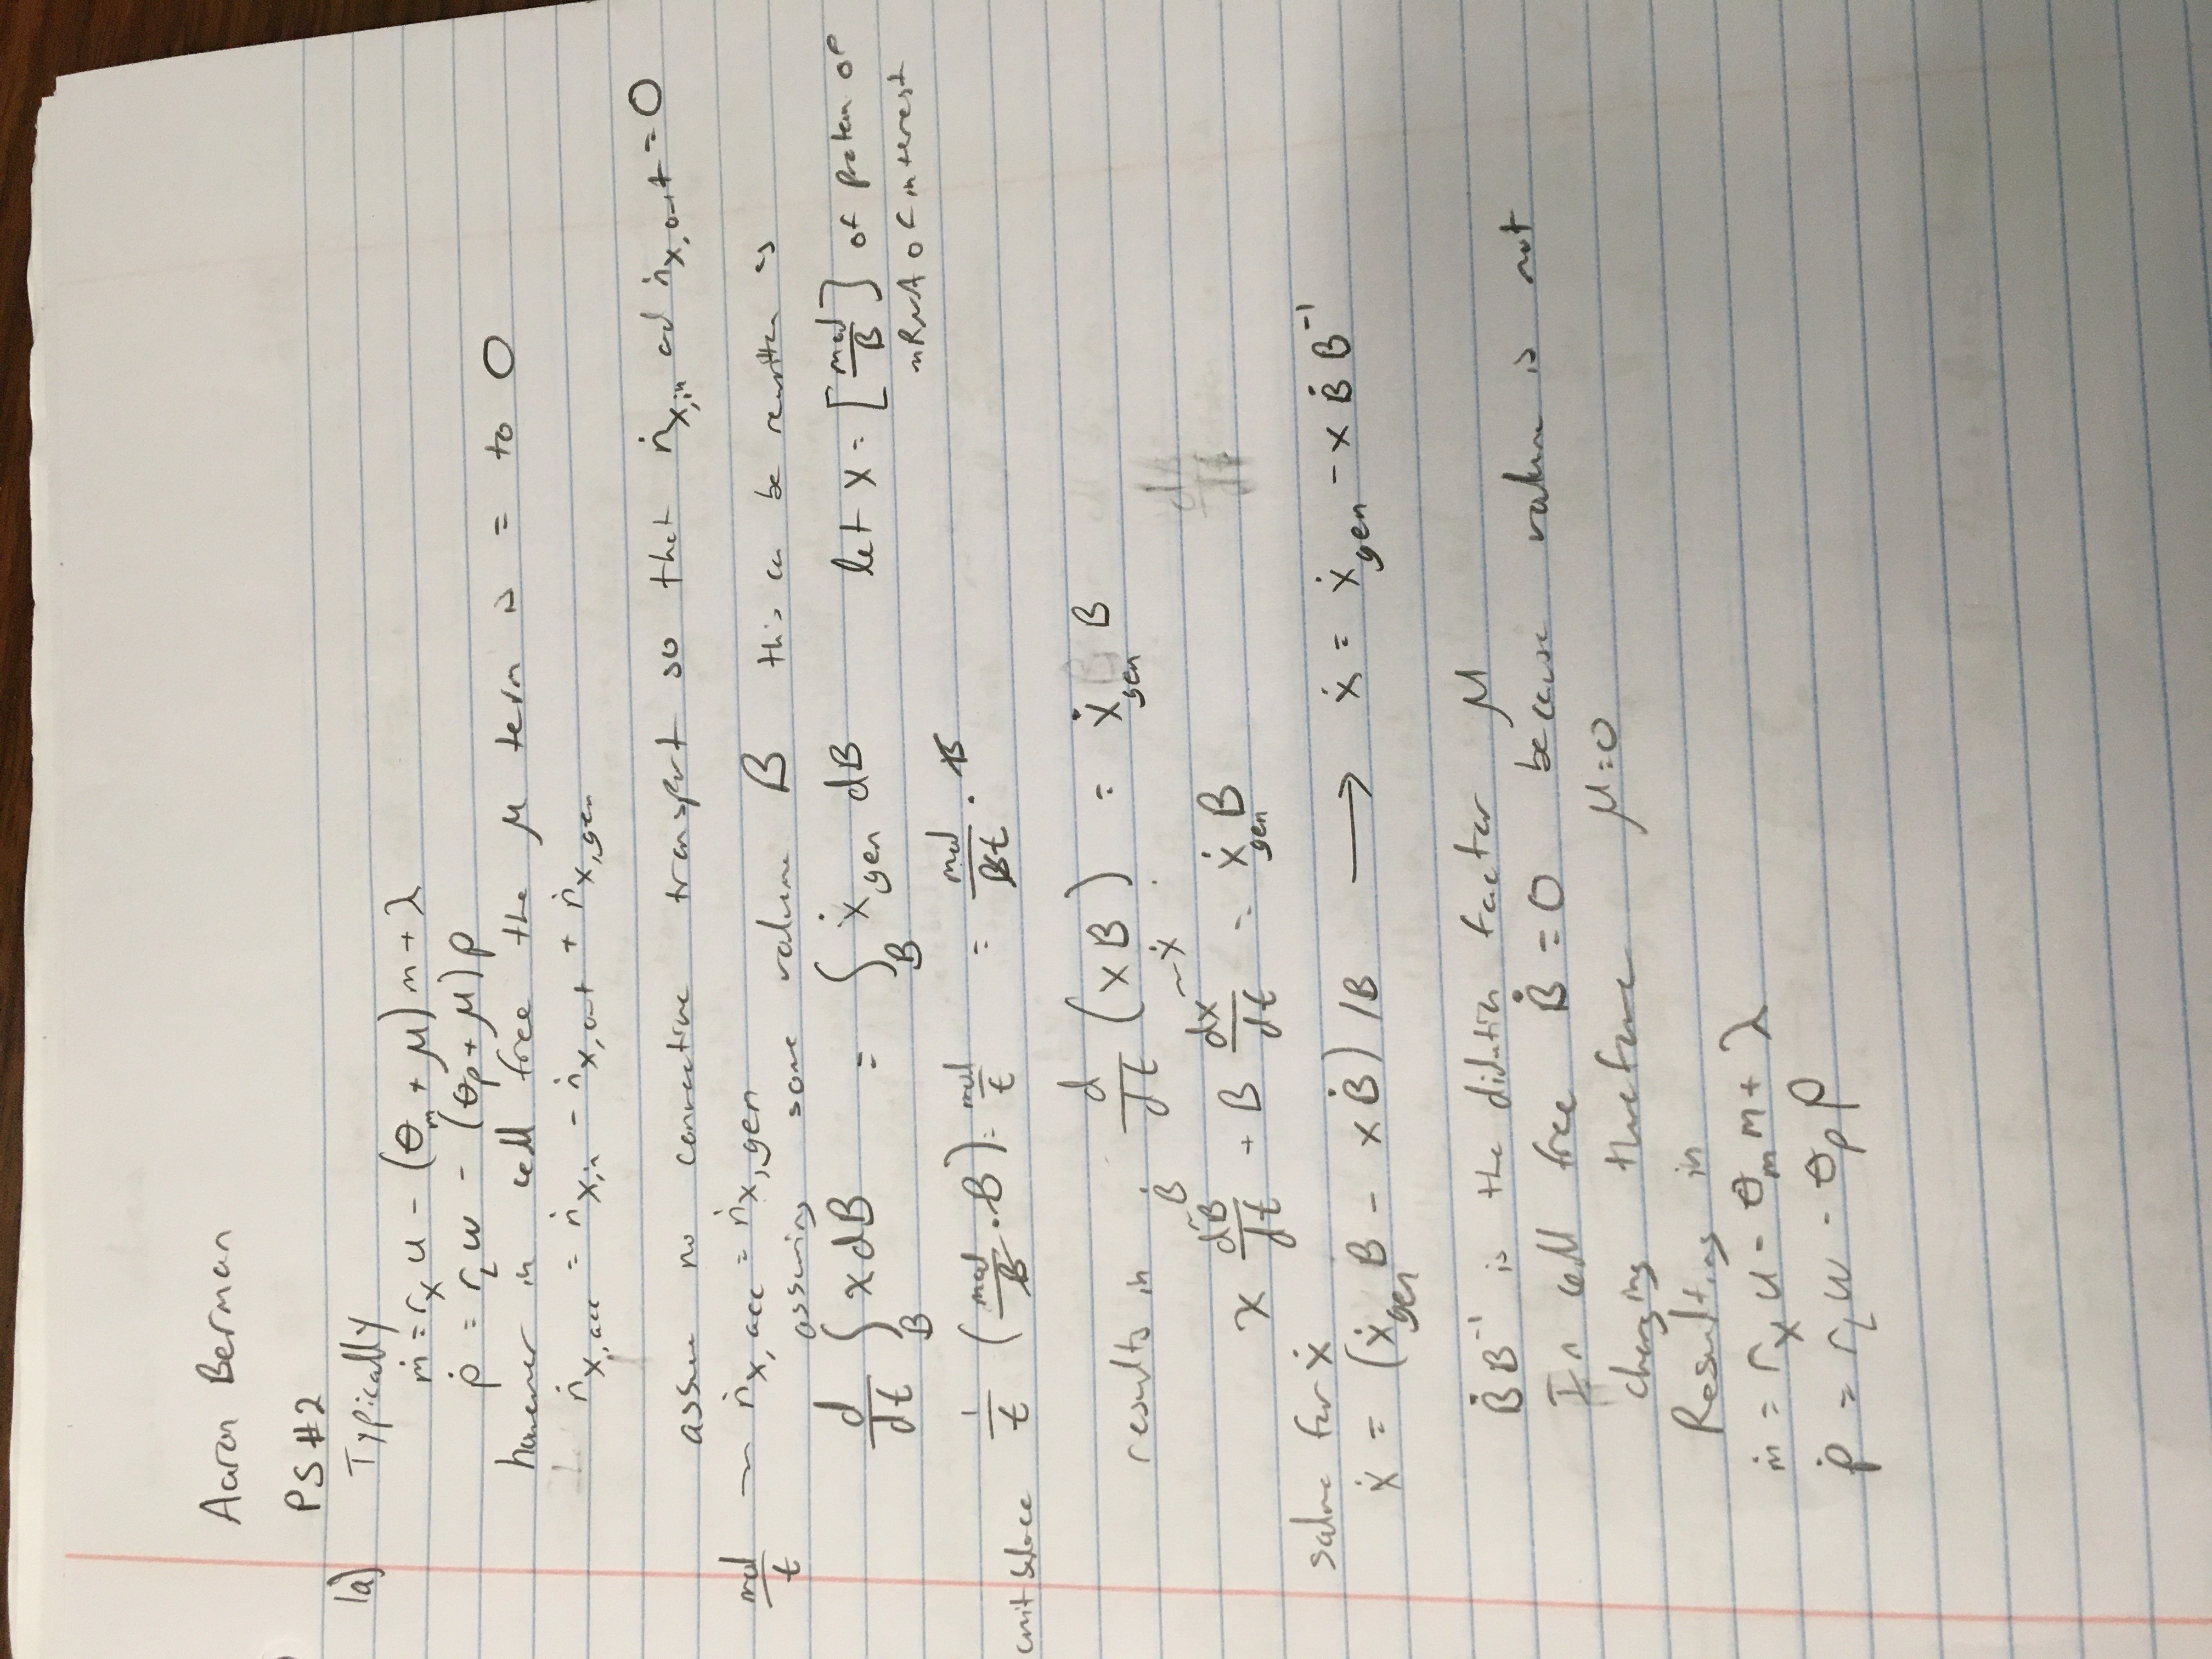 Aaron Berman
PS #2
1a) Typically
ṁ = r_x u - (θ_m + μ) m + λ
ṗ = r_L w - (θ_p + μ) p
however in cell free the μ term is = to 0
ṅ_x,acc = ṅ_x,in - ṅ_x,out + ṅ_x,gen
assume no convective transport so that ṅ_x,in and ṅ_x,out = 0
mol/t ~ ṅ_x,acc = ṅ_x,gen
assuming some volume B this can be rewritten as
d/dt ∫_B x dB = ∫_B ẋ_gen dB let x = [mol/B] of protein or
mRNA of interest
unit balance 1/t (mol/B · B) = mol/t = mol/Bt · B
results in d/dt (x B) = ẋ_gen B
x dB/dt ~Ḃ + B dx/dt ~ẋ = ẋ_gen B
solve for ẋ
ẋ = (ẋ_gen B - x Ḃ) / B → ẋ = ẋ_gen - x Ḃ B⁻¹
Ḃ B⁻¹ is the dilution factor μ
In cell free Ḃ = 0 because volume is not
changing therefore μ = 0
Resulting in
ṁ = r_x u - θ_m m + λ
ṗ = r_L w - θ_p p